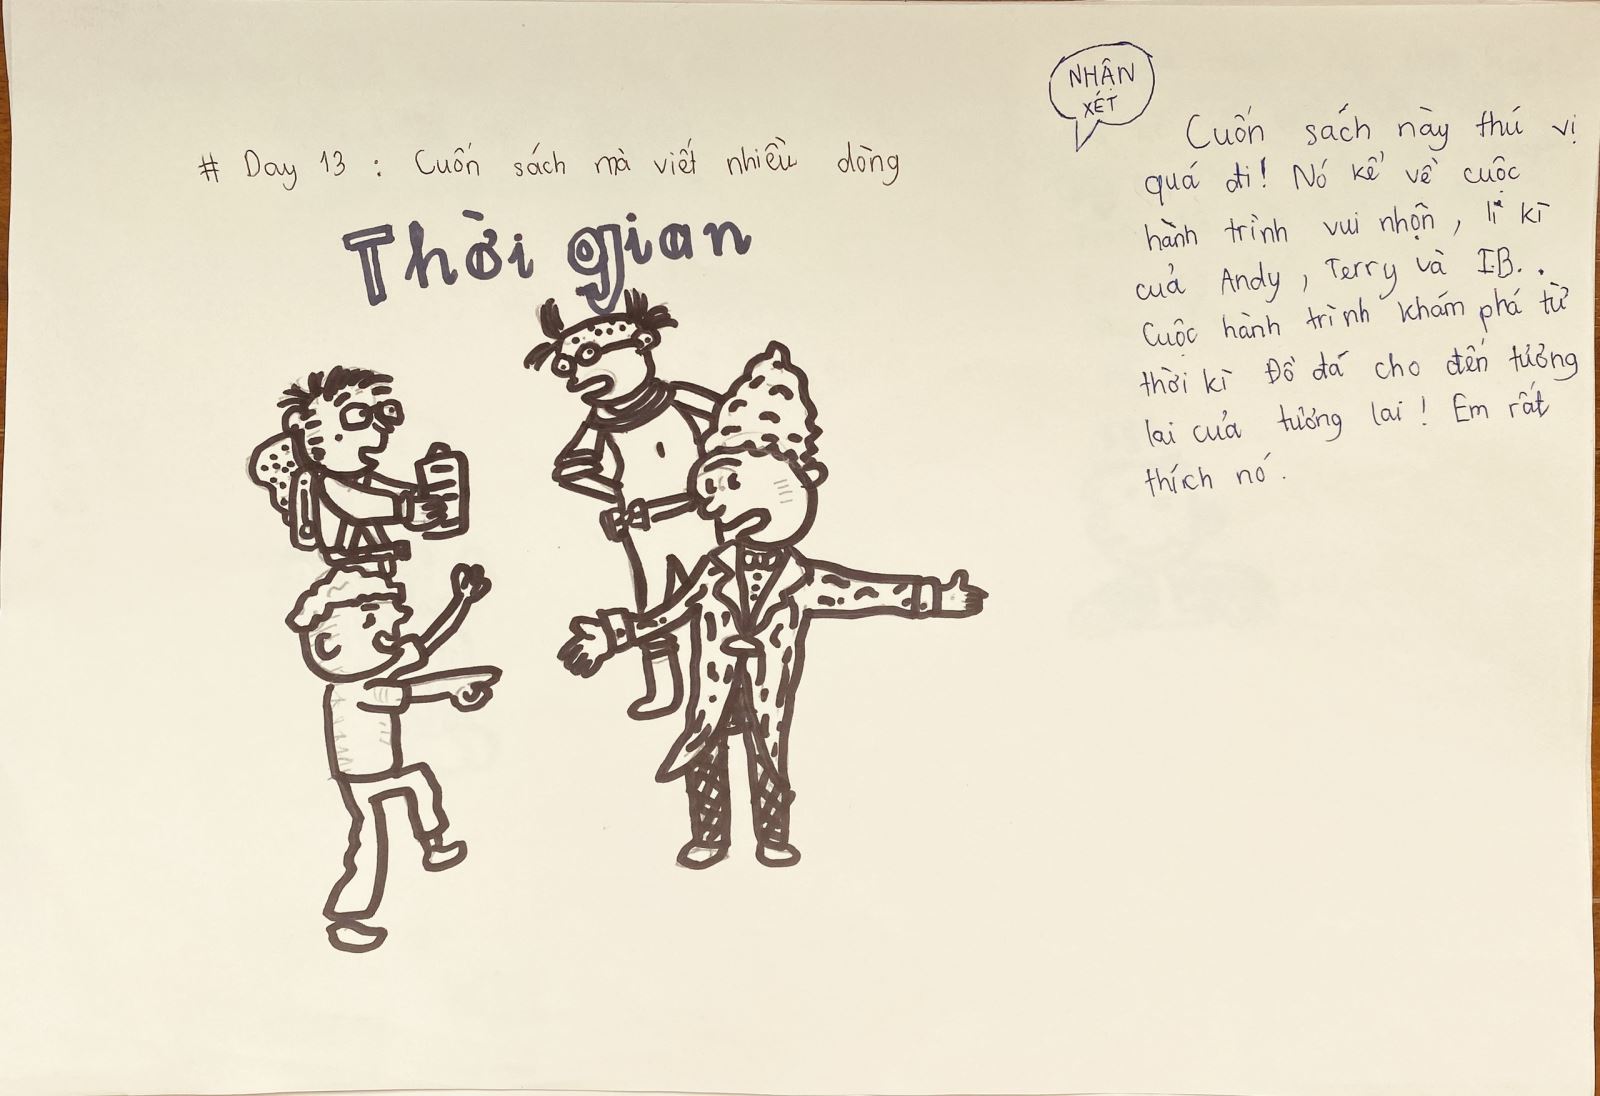 # Day 13 : Cuốn sách mà viết nhiều dòng
Thời gian
NHẬN
XÉT
Cuốn sách này thú vị
quá đi! Nó kể về cuộc
hành trình vui nhộn, li kì
của Andy, Terry và I.B..
Cuộc hành trình khám phá từ
thời kì Đồ đá cho đến tương
lai của tương lai! Em rất
thích nó.